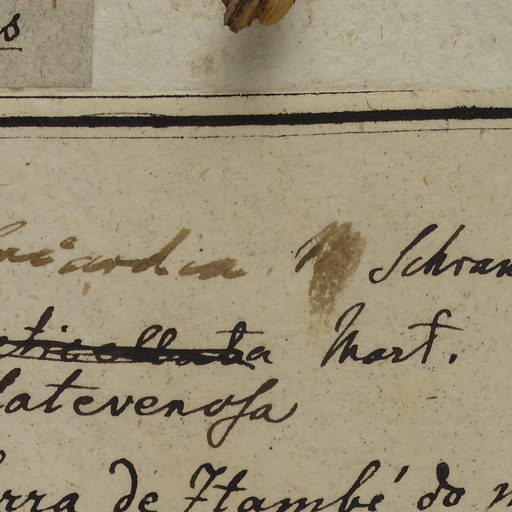 s
Schran
Mart.
latevenosa
rra de Itambé do